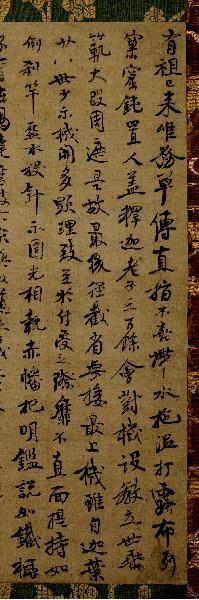 有祖已來唯務單傳直指不喜帶水拖泥打露布列
窠窟鈍置人蓋釋迦老子三百餘會對機設教立世垂
範大段周遮是故最後徑截省要接最上機雖自迦葉
廿八世少示機關多顯理致至於付受之際靡不直面提持如
倒刹竿盋水投針示圓光相執赤幡把明鑑說如鐵橛